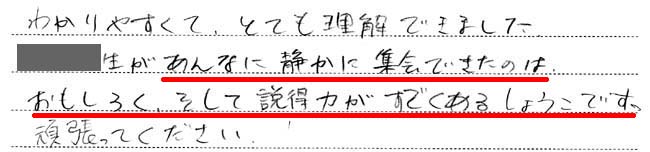 わかりやすくて、とても理解できました
生があんなに静かに集会できたのは、
おもしろく、そして説得力がすごくあるしょうこです。
頑張ってください。